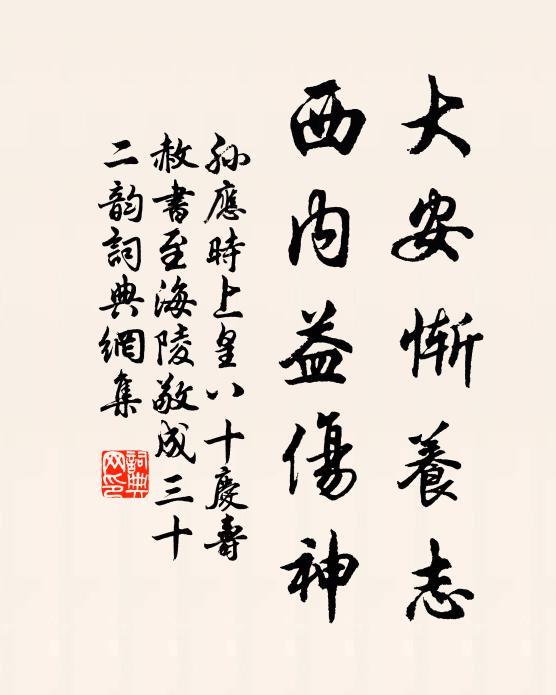 大安慚養志
西内益傷神
孙應時上皇八十慶壽
赦書至海陵敬成三十
二韵詞典網集
詞典
网印